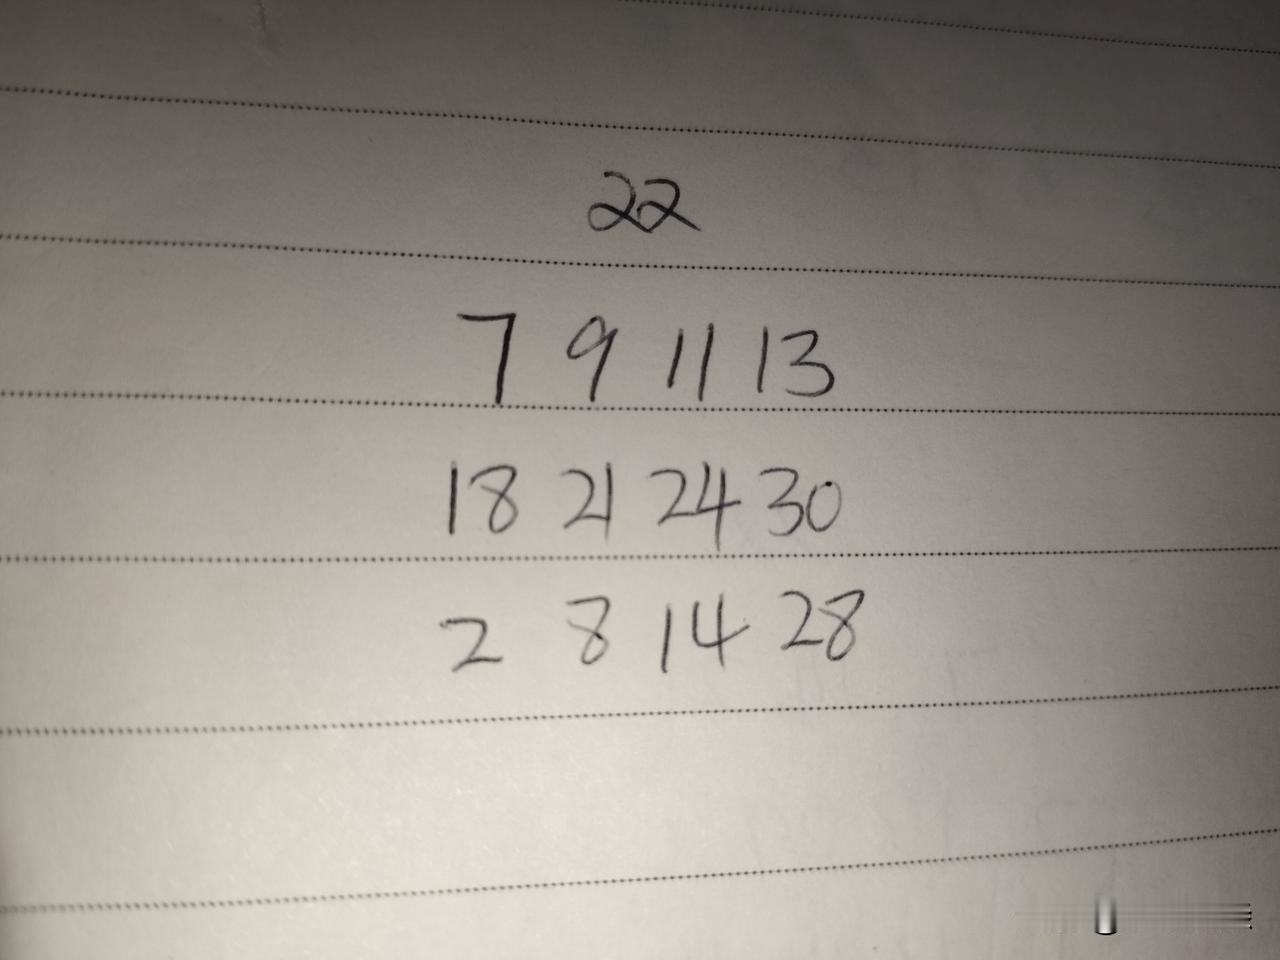 22
7 9 11 13
18 21 24 30
2 8 14 28